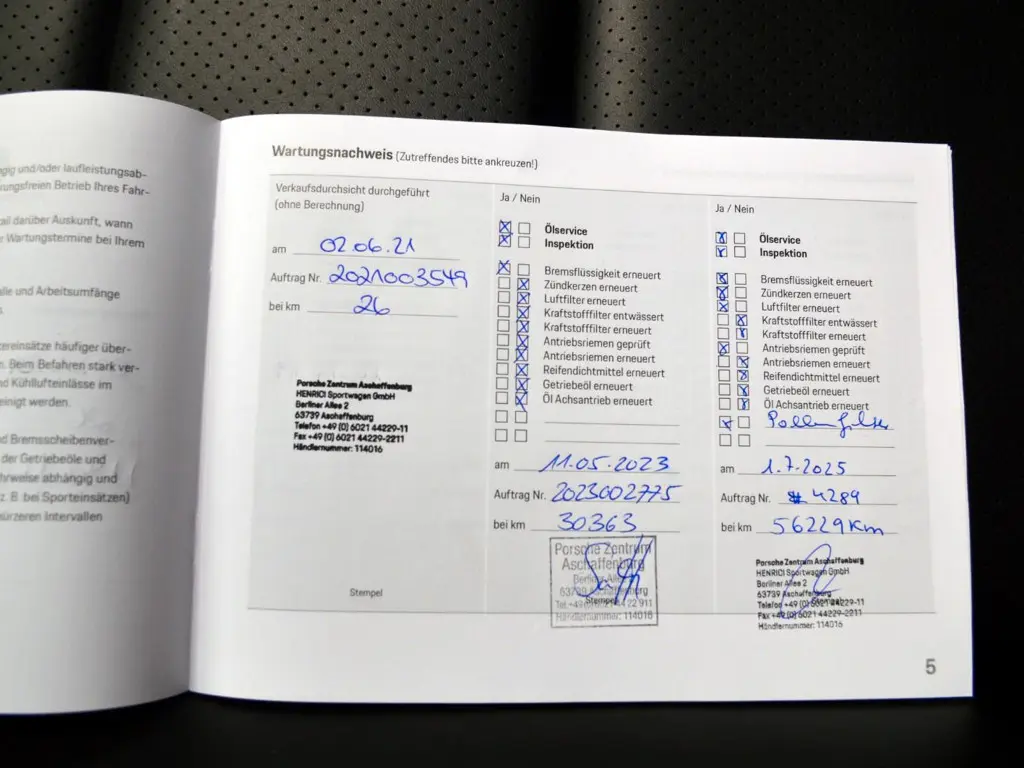 gig und/oder laufleistungsab-
ungsfreien Betrieb Ihres Fahr-
ail darüber Auskunft, wann
Wartungstermine bei Ihrem
alle und Arbeitsumfänge
ereinsätze häufiger über-
n. Beim Befahren stark ver-
d Kühllufteinlässe im
einigt werden.
d Bremsscheibenver-
der Getriebeöle und
hrweise abhängig und
z. B. bei Sporteinsätzen)
ürzeren Intervallen
Wartungsnachweis (Zutreffendes bitte ankreuzen!)
Verkaufsdurchsicht durchgeführt
(ohne Berechnung)
am 02.06.21
Auftrag Nr. 2021003549
bei km 26
Porsche Zentrum Aschaffenburg
HENRICI Sportwagen GmbH
Berliner Allee 2
63739 Aschaffenburg
Telefon +49 (0) 6021 44229-11
Fax +49 (0) 6021 44229-2211
Händlernummer: 114016
Stempel
Ja / Nein
Ölservice
Inspektion
Bremsflüssigkeit erneuert
Zündkerzen erneuert
Luftfilter erneuert
Kraftstofffilter entwässert
Kraftstofffilter erneuert
Antriebsriemen geprüft
Antriebsriemen erneuert
Reifendichtmittel erneuert
Getriebeöl erneuert
Öl Achsantrieb erneuert
am 11.05.2023
Auftrag Nr. 2023002775
bei km 30363
Porsche Zentrum
Aschaffenburg
Berliner Allee
63739 Aschaffenburg
Stempel
Händlernummer: 114016
Ja / Nein
Ölservice
Inspektion
Bremsflüssigkeit erneuert
Zündkerzen erneuert
Luftfilter erneuert
Kraftstofffilter entwässert
Kraftstofffilter erneuert
Antriebsriemen geprüft
Antriebsriemen erneuert
Reifendichtmittel erneuert
Getriebeöl erneuert
Öl Achsantrieb erneuert
Pollenfilter
am 1.7.2025
Auftrag Nr. 4289
bei km 56229 Km
Porsche Zentrum Aschaffenburg
HENRICI Sportwagen GmbH
Berliner Allee 2
63739 Aschaffenburg
Telefon +49 (0) 6021 44229-11
Stempel
Fax +49 (0) 6021 44229-2211
Händlernummer: 114016
5